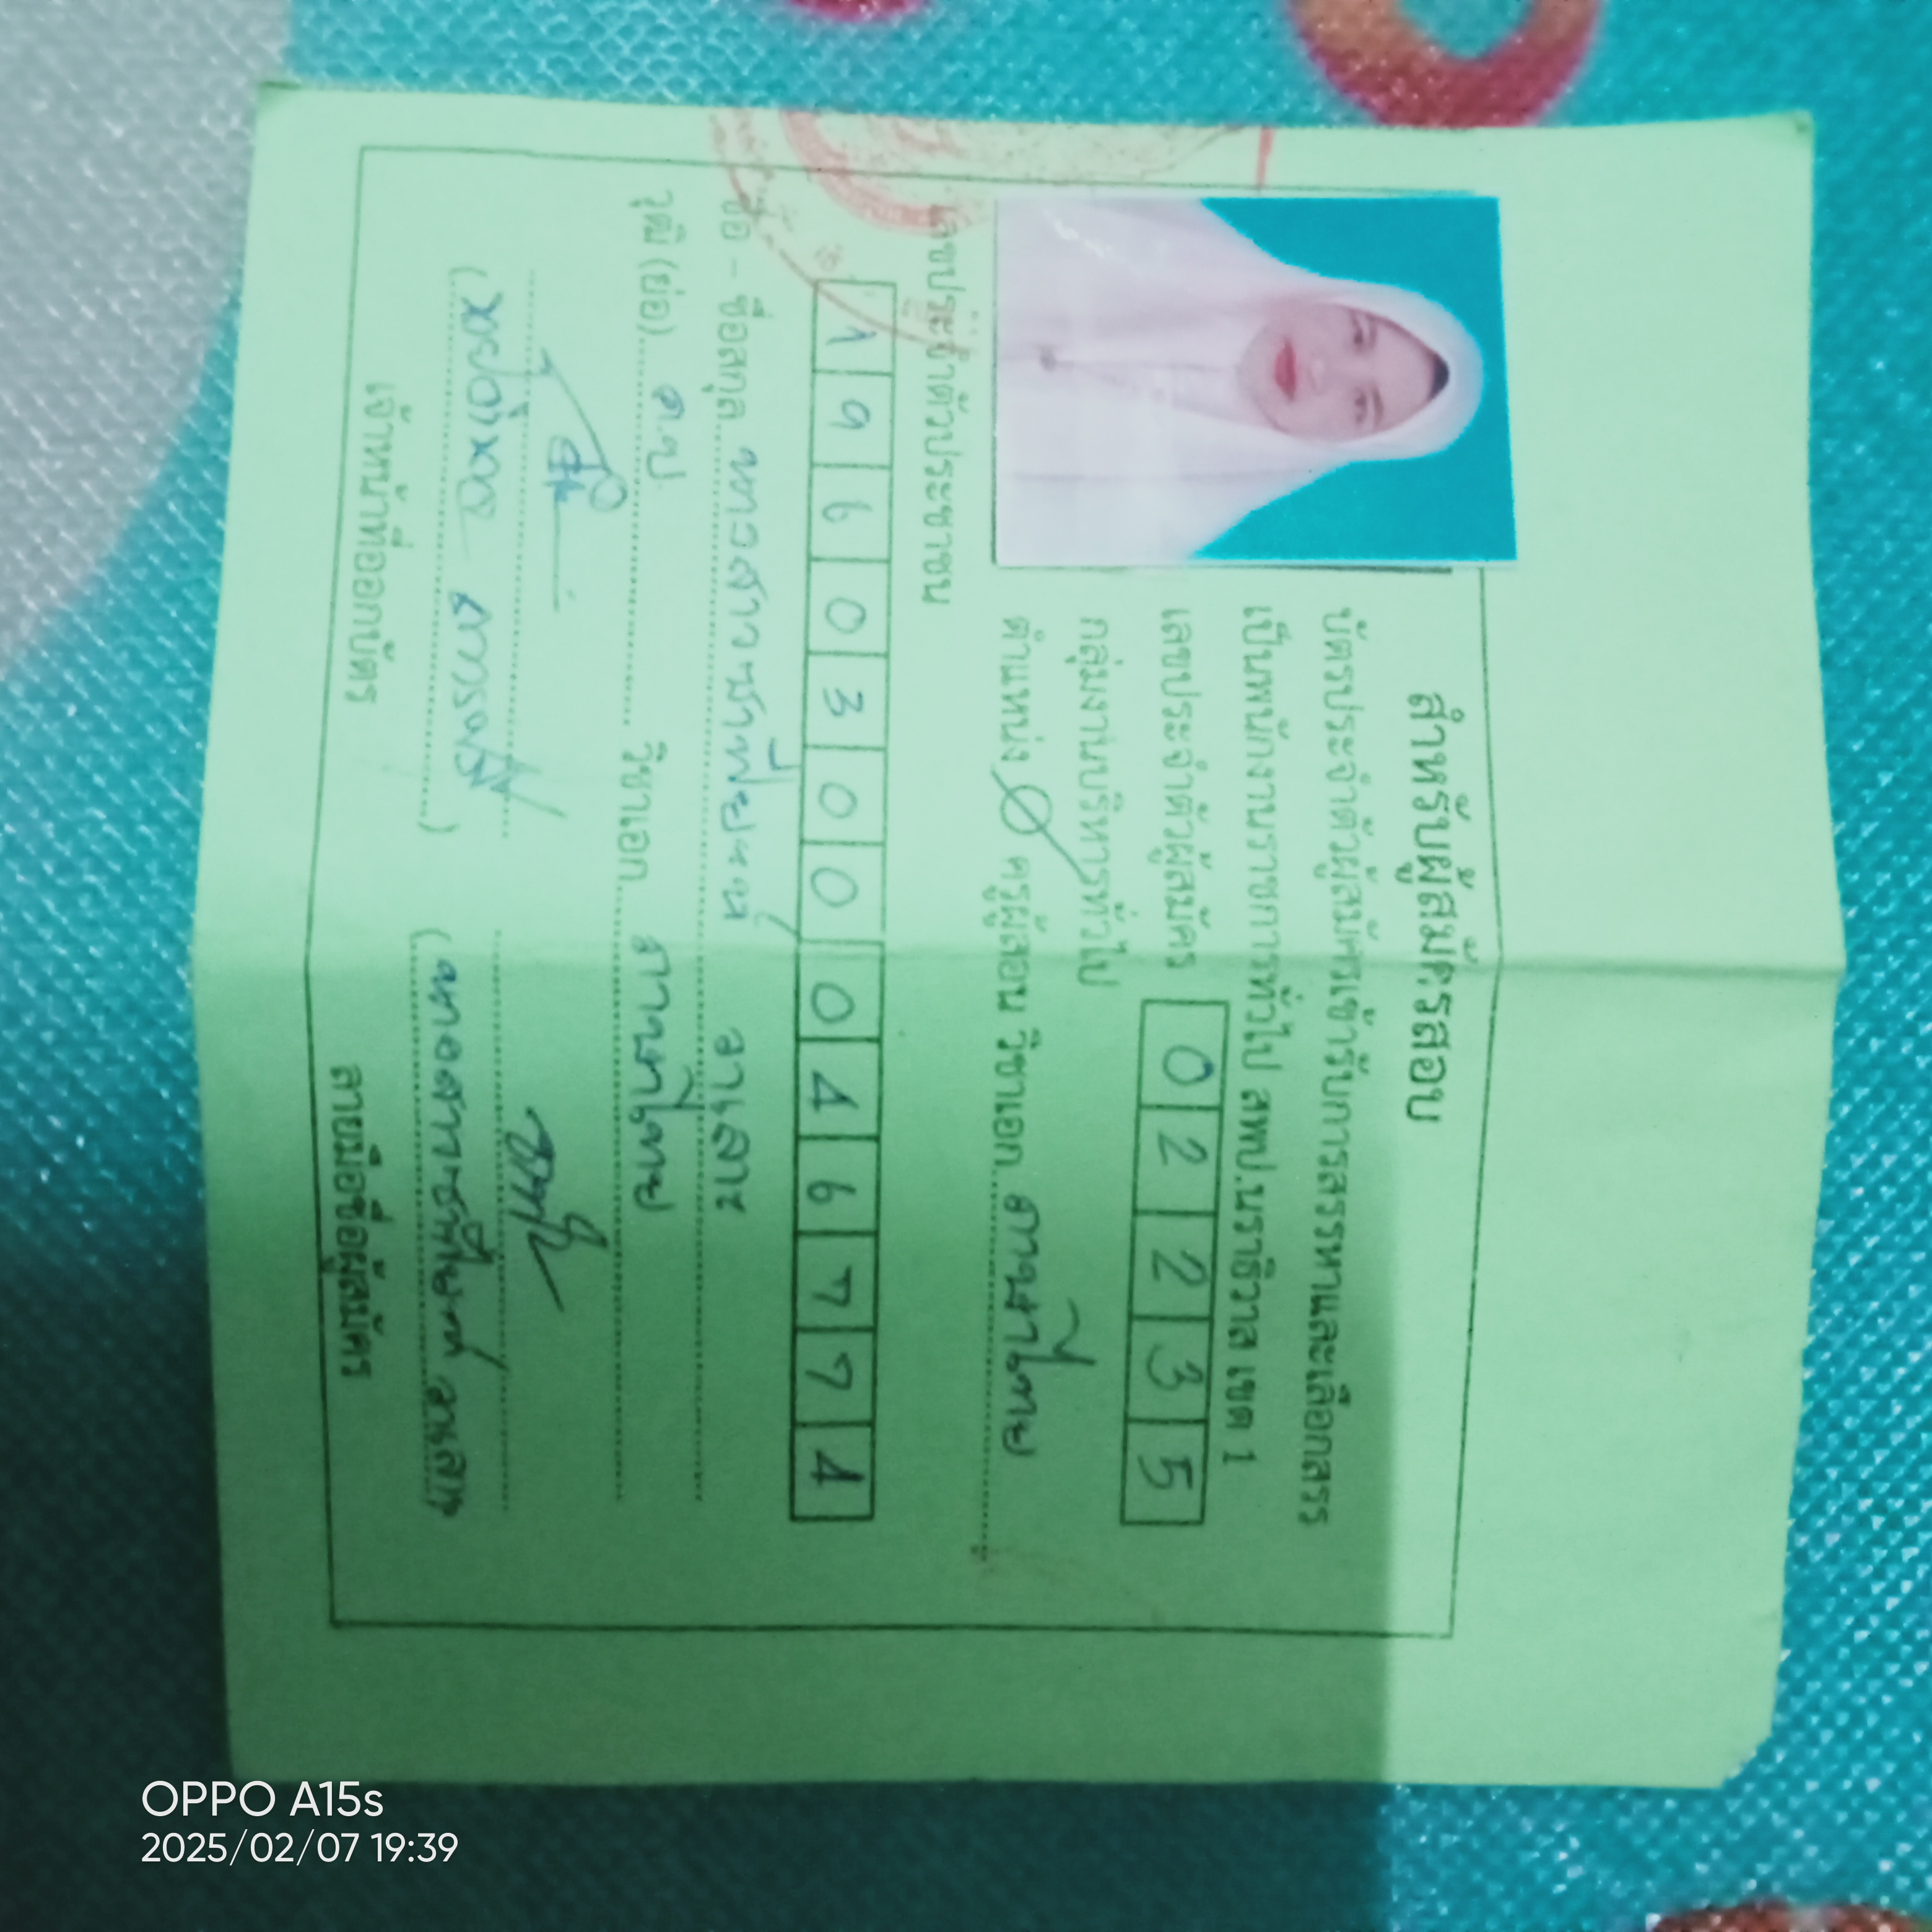 สำหรับผู้สมัครสอบ
บัตรประจำตัวผู้สมัครเข้ารับการสรรหาและเลือกสรร
เป็นพนักงานราชการทั่วไป สพป.นราธิวาส เขต 1
เลขประจำตัวผู้สมัคร 0 2 2 3 5
กลุ่มงานบริหารทั่วไป
ตำแหน่ง ครูผู้สอน วิชาเอก ภาษาไทย
เลขประจำตัวประชาชน
1 9 6 0 3 0 0 0 4 6 7 7 4
ชื่อ - ชื่อสกุล
วุฒิ (ย่อ) ค.บ วิชาเอก ภาษาไทย
เจ้าหน้าที่ออกบัตร ลายมือชื่อผู้สมัคร
OPPO A15s
2025/02/07 19:39